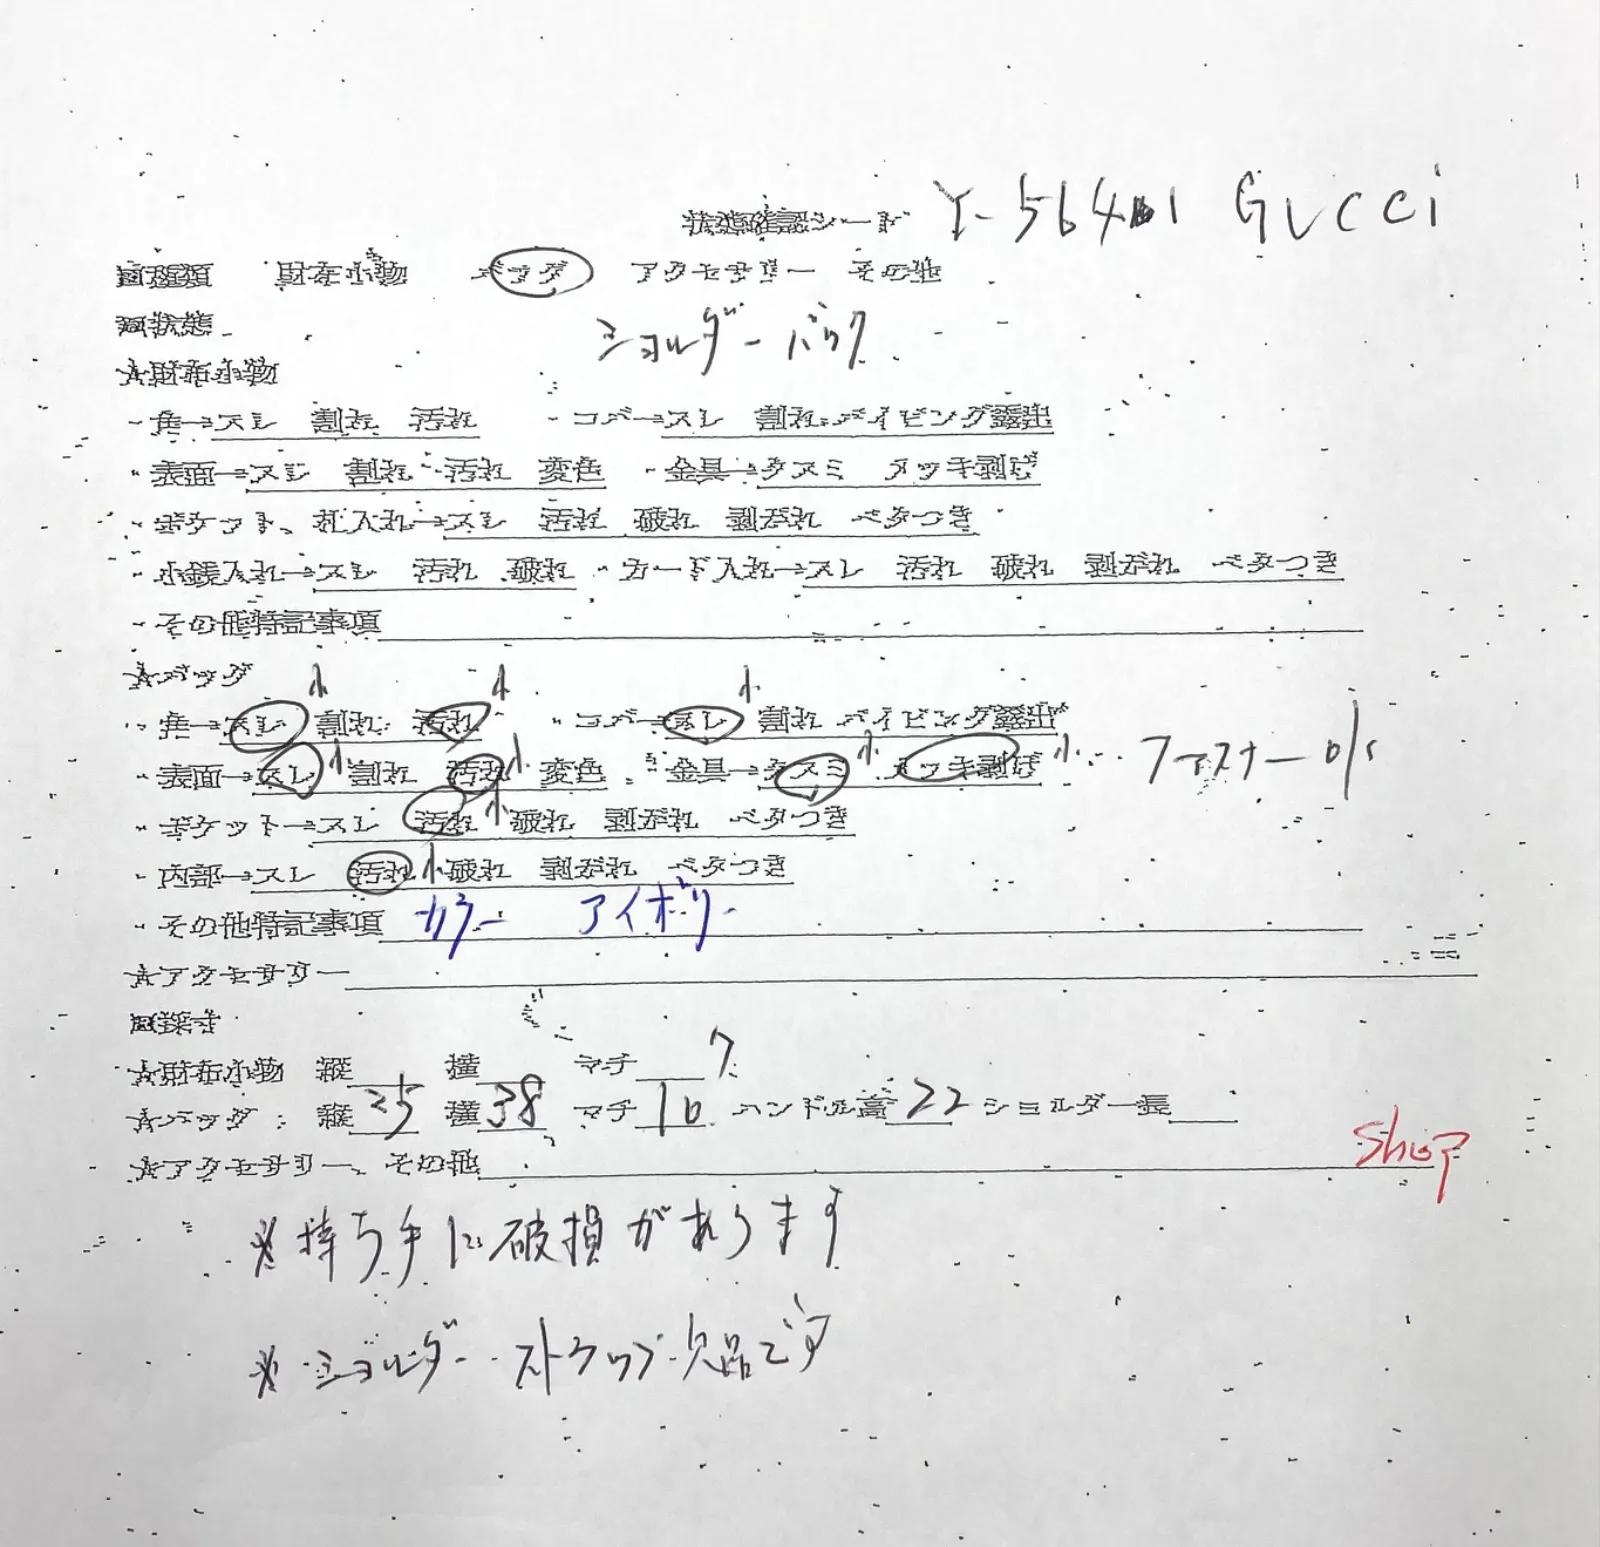 状態確認シート Y-56401 GUCCI
□種類 財布小物 バッグ アクセサリー その他
□状態
ショルダーバック
☆財布小物
・角→スレ 割れ 汚れ ・コバ→スレ 割れ パイピング露出
・表面→スレ 割れ 汚れ 変色 ・金具→クスミ メッキ剥げ
・ポケット、札入れ→スレ 汚れ 破れ 剥がれ ベタつき
・小銭入れ→スレ 汚れ 破れ ・カード入れ→スレ 汚れ 破れ 剥がれ ベタつき
・その他特記事項
☆バッグ
小 小 小
・角→スレ 割れ 汚れ ・コバ→スレ 割れ パイピング露出
・表面→スレ 小 割れ 汚れ 小 変色 ・金具→クスミ 小 メッキ剥げ 小 ファスナー
・ポケット→スレ 汚れ 小 破れ 剥がれ ベタつき
・内部→スレ 汚れ 小 破れ 剥がれ ベタつき
・その他特記事項 カラー アイボリー
☆アクセサリー
□採寸
☆財布小物 縦 横 マチ 7
☆バッグ:縦25 横38 マチ10 ハンドル高22 ショルダー長
☆アクセサリー、その他
Shop
※持ち手に破損があります
※ショルダーストラップ欠品です